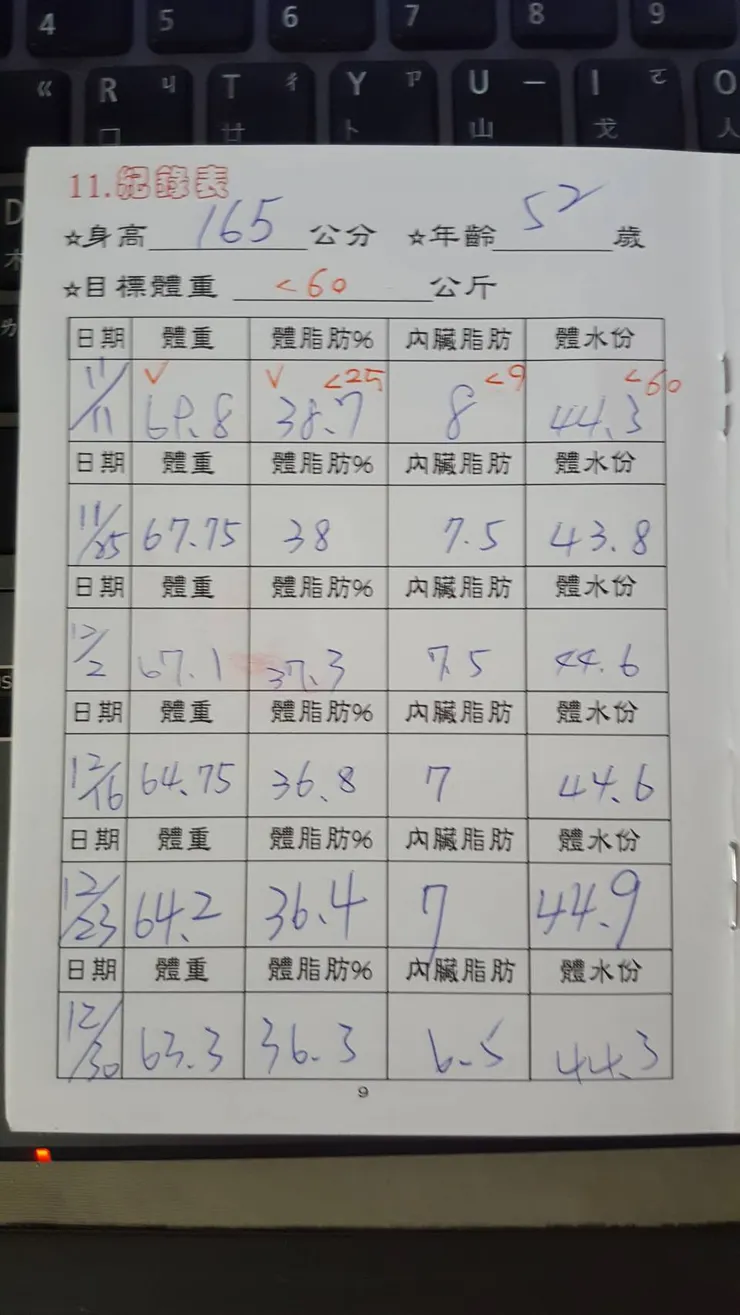 4 5 6 7 8 9
« R ㄐ T ㄔ Y ㄗ U 一 I ㄛ O
口 廿 卜 山 戈 人
D
木
ㄌ
11.紀錄表
☆身高 165 公分 ☆年齡 52 歲
☆目標體重 <60 公斤
日期 體重 體脂肪% 內臟脂肪 體水份
✓ ✓ <25 <9 <60
11/11 69.8 38.7 8 44.3
日期 體重 體脂肪% 內臟脂肪 體水份
11/25 67.75 38 7.5 43.8
日期 體重 體脂肪% 內臟脂肪 體水份
12/2 67.1 37.3 7.5 44.6
日期 體重 體脂肪% 內臟脂肪 體水份
12/16 64.75 36.8 7 44.6
日期 體重 體脂肪% 內臟脂肪 體水份
12/23 64.2 36.4 7 44.9
日期 體重 體脂肪% 內臟脂肪 體水份
12/30 63.3 36.3 6.5 44.3
9